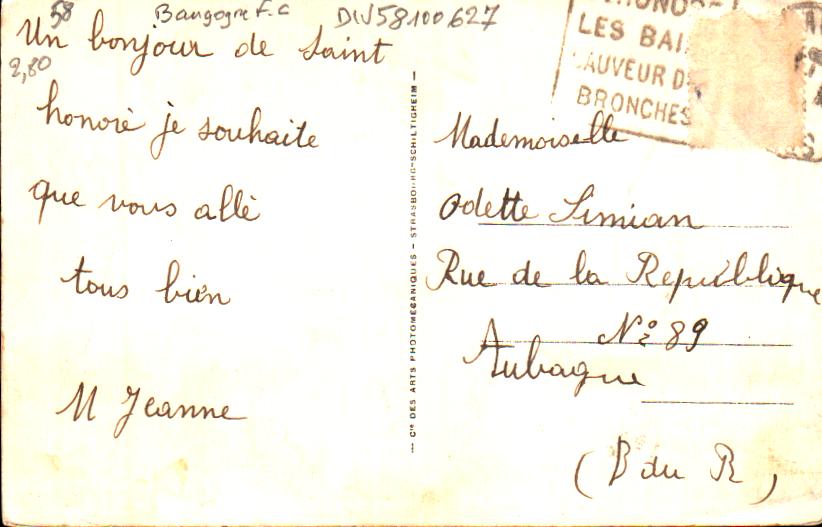 58
Bourgogne F.C
DIV58100627
2,80
Un bonjour de Saint
honorè je souhaite
que vous allè
tous bien
M Jeanne
— Cie DES ARTS PHOTOMECANIQUES - STRASBOURG-SCHILTIGHEIM —
LES BAI
BRONCHES
Mademoiselle
Odette Simian
Rue de la Republique
No 89
Aubagne
(B du R)